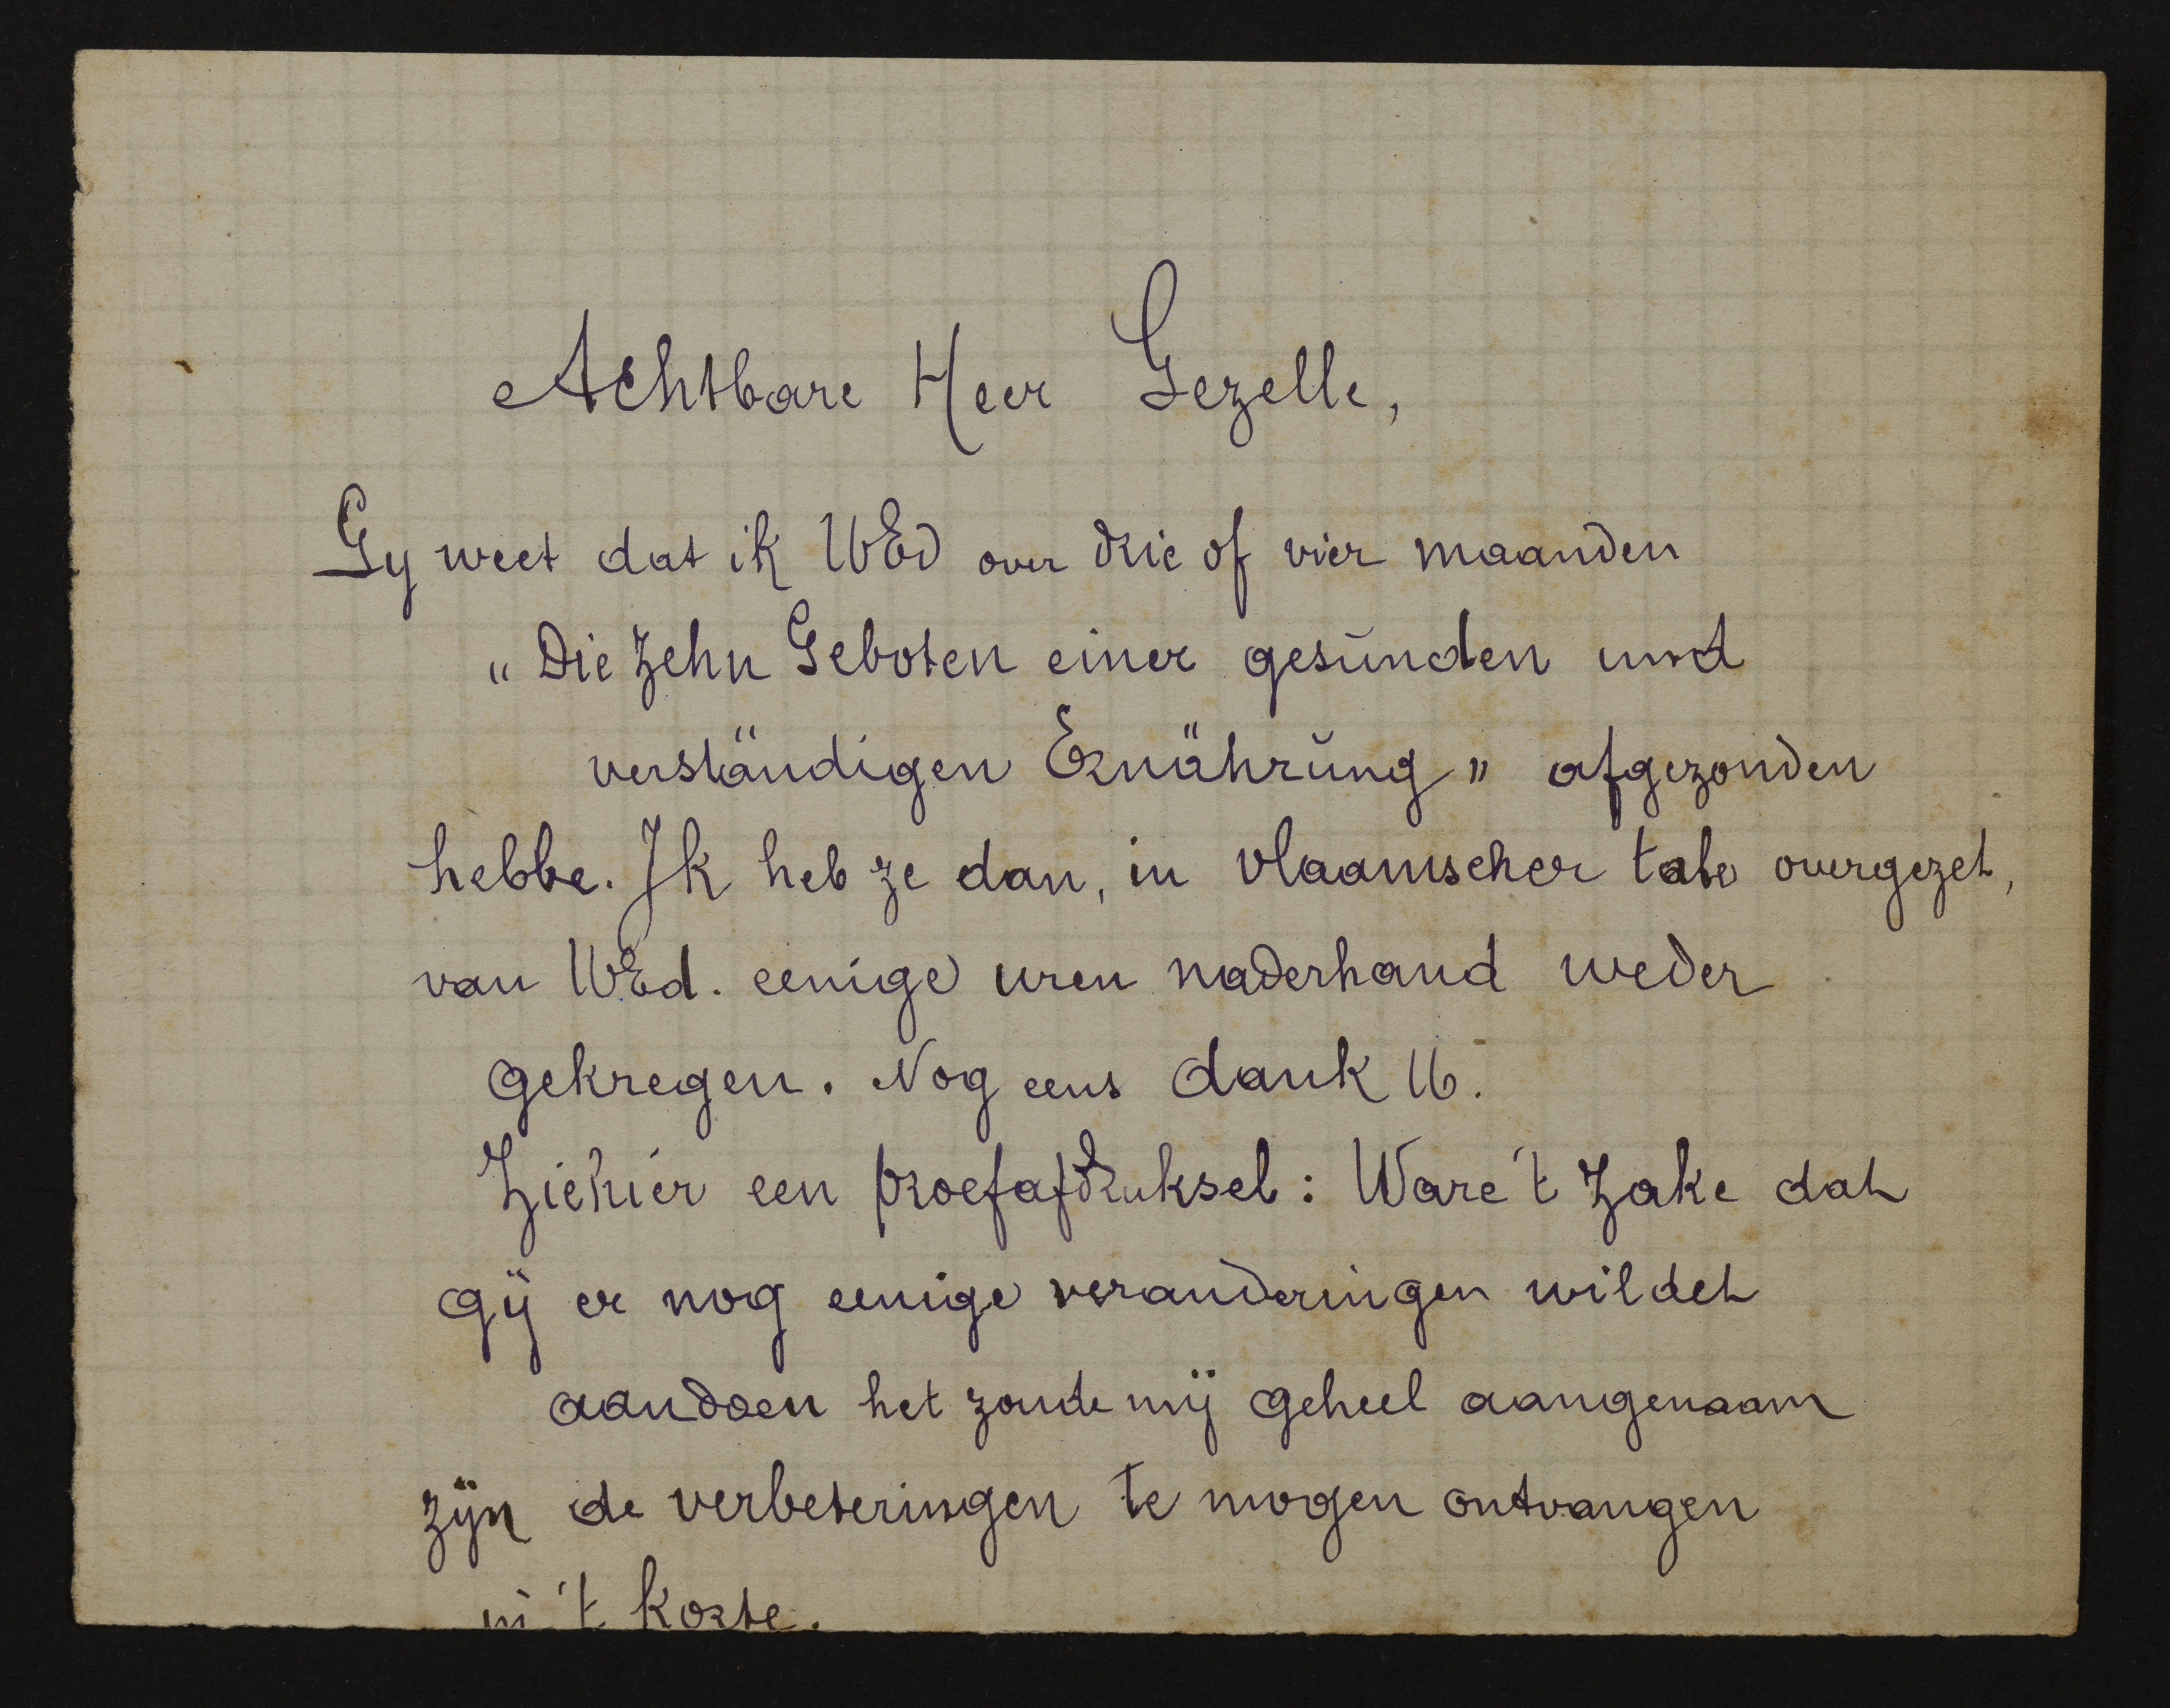 Achtbare Heer Gezelle,
Gy weet dat ik UEd over drie of vier maanden
„Die Zehn Geboten einer gesŭnden und
verständigen Ernährŭng" afgezonden
hebbe. Ik heb ze dan, in vlaamscher tale overgezet,
van UEd. eenige uren naderhand weder
gekregen. Nog eens dank U.
Ziehier een proefafdruksel: Ware 't zake dat
gij er nog eenige veranderingen wildet
aandoen het zoude mij geheel aangenaam
zijn de verbeteringen te mogen ontvangen
in 't korte.